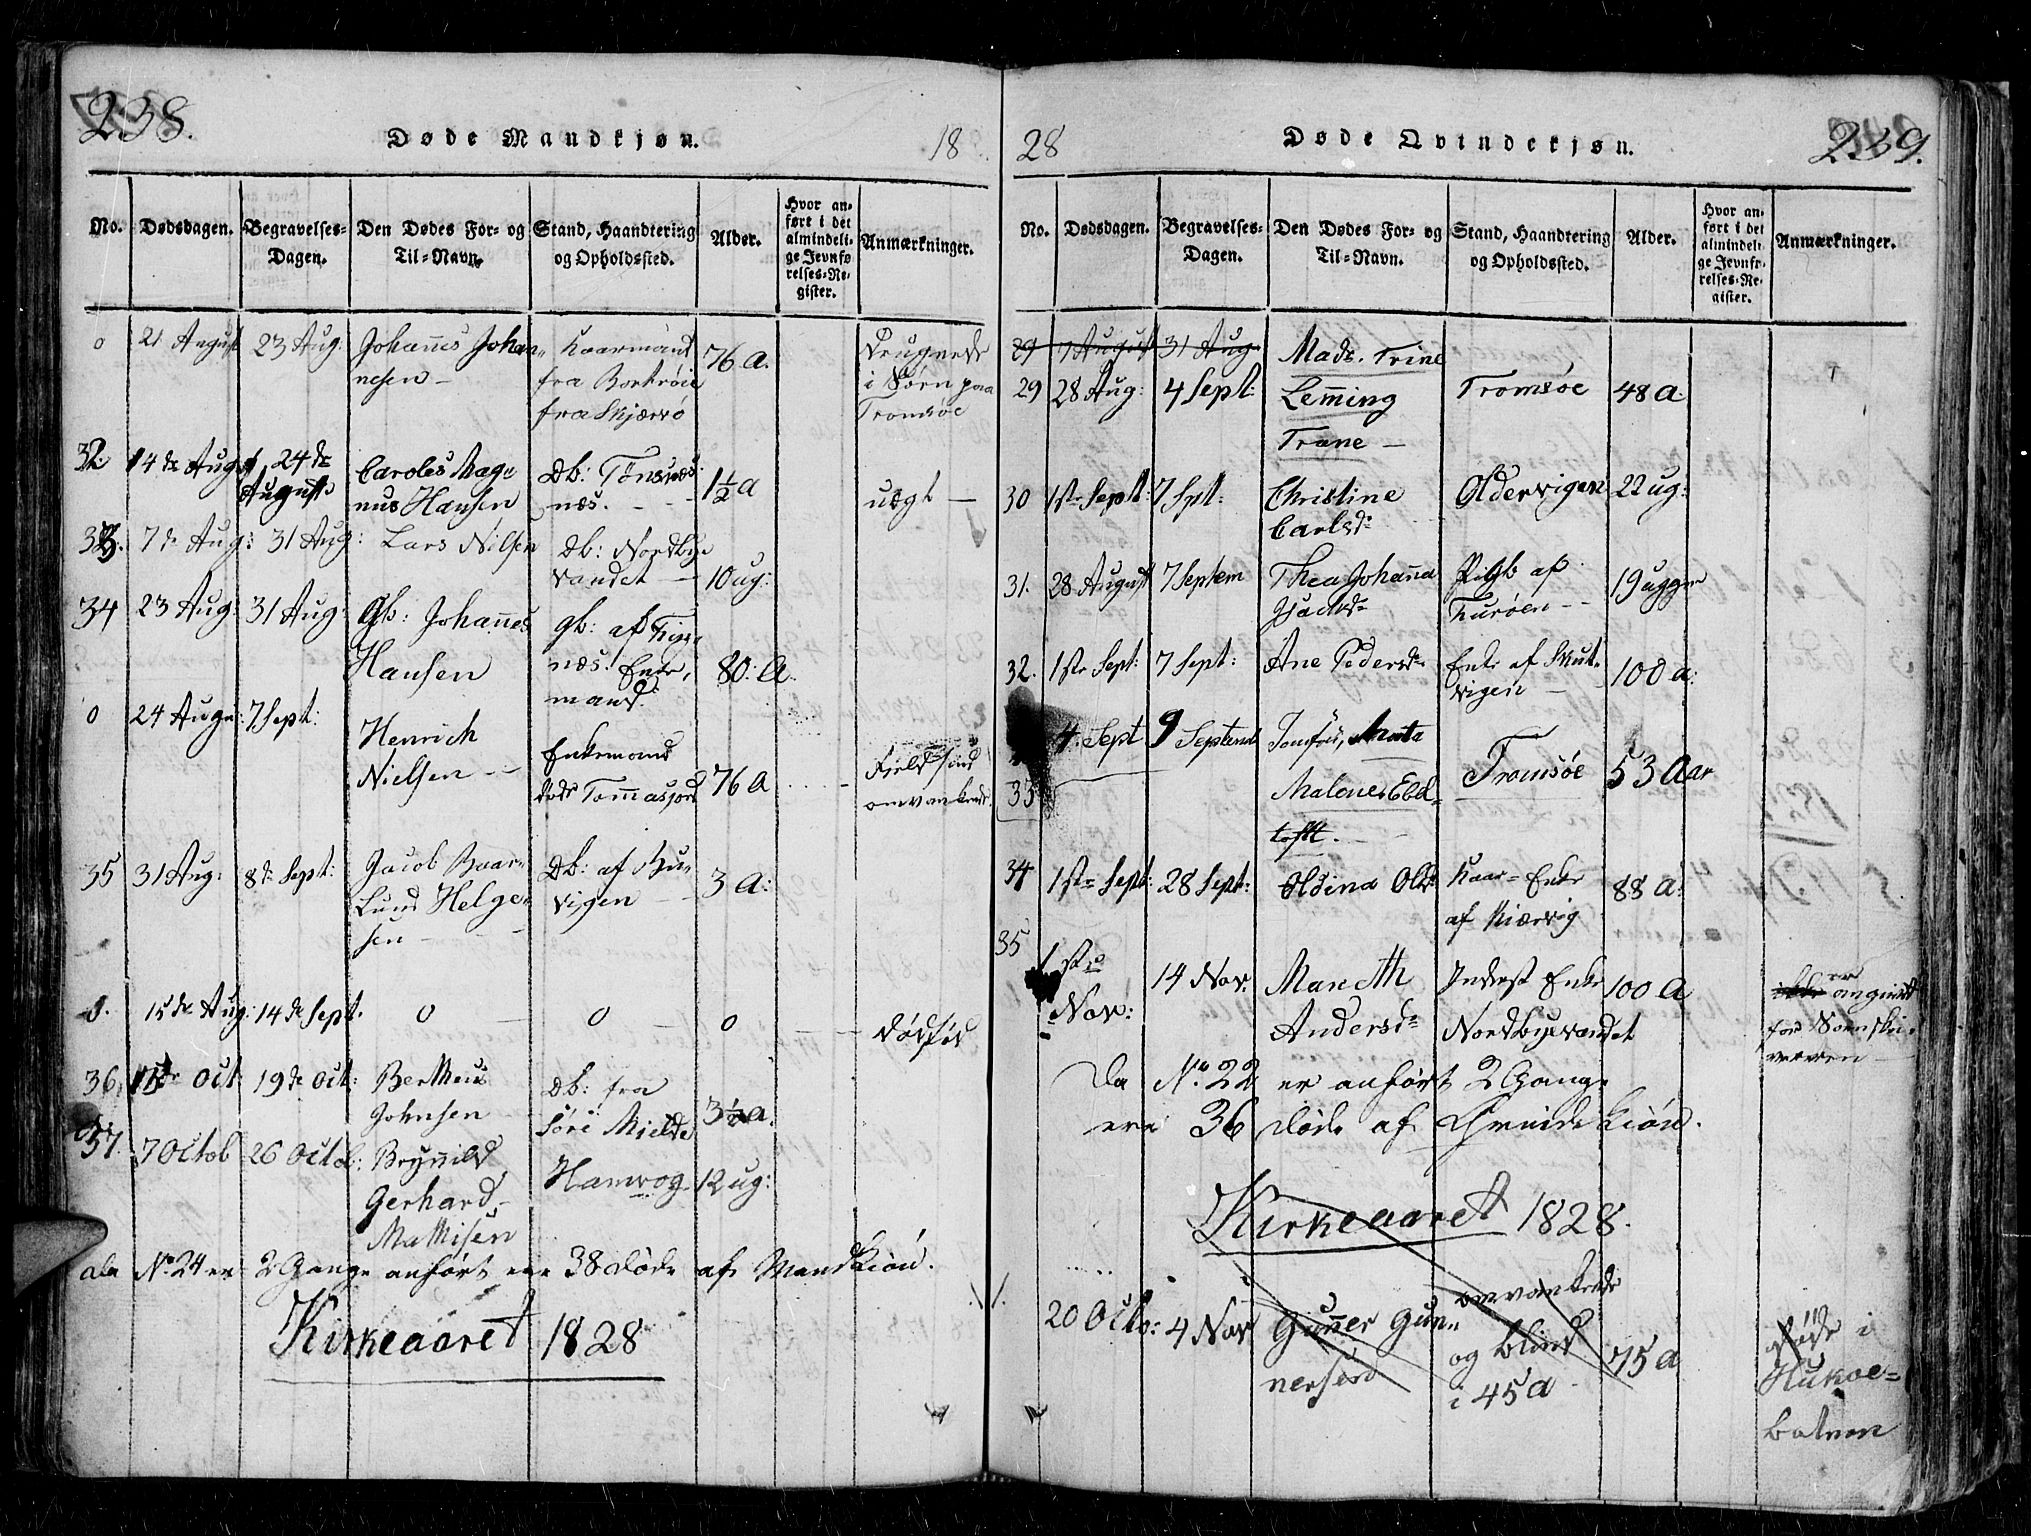 238.
Døde Mandkjøn.
18
No.
Dødsdagen.
Begravelses-
Dagen.
Den Dødes For- og
Til-Navn.
Stand, Haandtering
og Opholdssted.
Alder.
Hvor an-
ført i det
almindeli-
ge Jevnfø-
relses-Re-
gister.
Anmærkninger.
0 21 August 23 Aug: Johannes Johan-
nesen – Kaarmand
fra
fra Skjærvø 76 A.
i Søen paa
Tromsøe
32. 14de Aug 24de
August Caroles Mag-
nus Hansen Db: Tønsnæs
næs. 1½ a uægt –
33. 7de Aug: 31 Aug: Lars Nilsen Db: Nordbye
vandet – 10 ug:
34 23 Aug: 31 Aug: Gb: Johannes
Hansen gb: af
næs. Enke,
mand. 80: A.
0 24 Augu: 7 Sept: Henrich
Nielsen – Enkemand
døde Tommasjord 76 A
Fieldfind
omvankende.
35 31 Aug: 8de Sept: Jacob Baar-
Lund Helge-
sen – Db: af
vigen – 3 A:
0. 15de Aug: 14de Sept. 0 – 0 – 0 – dødfød
36. Oct 19de Oct: Bertheus
Johnsen Db: fra
Søre Mielde 3½ a.
37. 7 Octob 26 Octob: Brynnild
Gerhard
Mathisen Hamvog 12 ug:
da No 24 er 2 Gange anført ere 38 døde af MandKiøn.
Kirkeaaret 1828
28
Døde Qvindekjøn.
239.
No.
Dødsdagen.
Begravelses-
Dagen.
Den Dødes For- og
Til-Navn.
Stand, Haandtering
og Opholdssted.
Alder.
Hvor an-
ført i det
almindeli-
ge Jevnfø-
relses-Re-
gister.
Anmærkninger.
29 7 August 31 Aug: Mads. Trine
29 28 Aug: 4 Sept: Lemming
Trane – Tromsøe 48 A.
30 1ste Sept: 7 Spt: Christine
Carlsd: Oldervigen 22 ug:
31. 28 August 7 Septem Thea Johanna
Isaksd: af
– 19 ugger
32. 1ste Sept: 7 Sept: Ane Pedersd: Enke af Skut-
vigen – 100 a:
33 4 Sept 9 Septemb Jomfru,
Malene Ebel-
toft. – Tromsøe 53 Aar
34 1ste Sept: 28 Sept: Oldina Olsd: Kaar-Enke
af Kiærvig 88 a:
35 1ste
Nov: 14 Nov: Mareth
Andersd: Inderst Enke
Nordbyevandet 100 A
er angivet
for
Da No 22 er anført 2 Gange
ere 36 døde af Qvinde Kiøn.
Kirkeaaret 1828.
20 Octb: 4 Nov Gunner Gun-
nersen omvankende
og blind
i 45 A 75 A
døde i